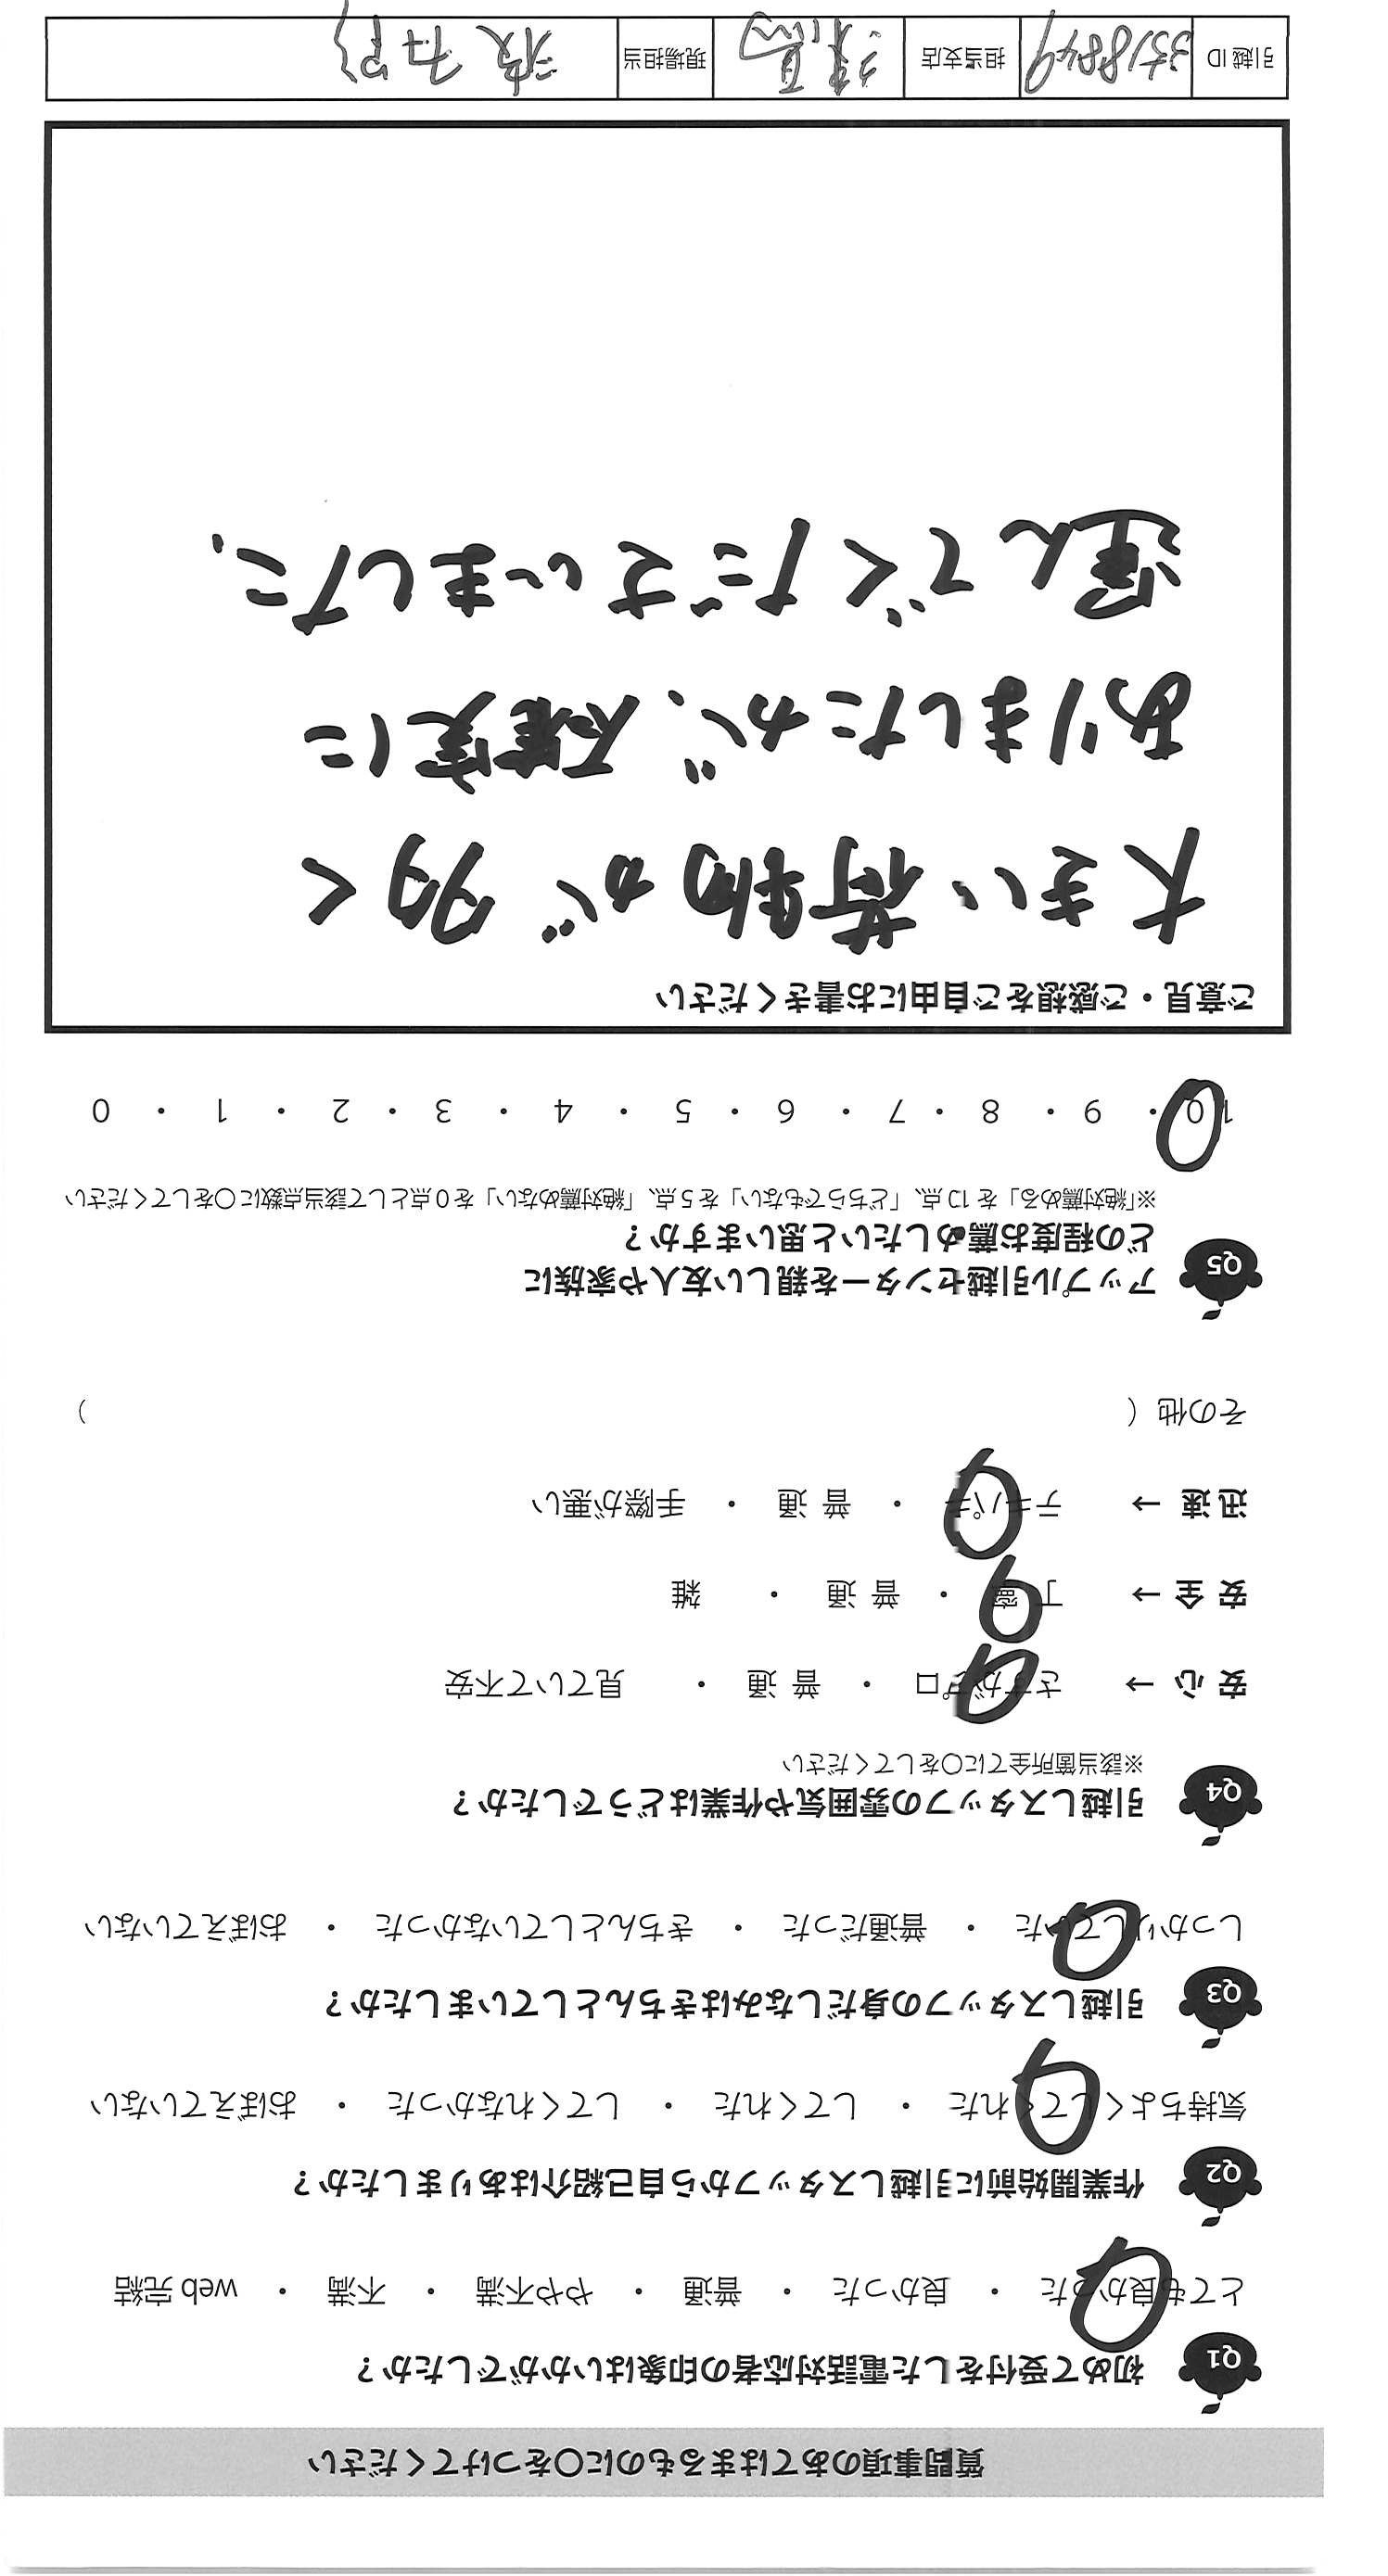 質問事項のあてはまるものに○をつけてください
Q1 初めて受付をした電話対応者の印象はいかがでしたか？
とても良かった ・ 良かった ・ 普通 ・ やや不満 ・ 不満 ・ web 完結
Q2 作業開始前に引越しスタッフから自己紹介はありましたか？
気持ちよくしてくれた ・ してくれた ・ してくれなかった ・ おぼえていない
Q3 引越しスタッフの身だしなみはきちんとしていましたか？
しっかりしていた ・ 普通だった ・ きちんとしていなかった ・ おぼえていない
Q4 引越しスタッフの雰囲気や作業はどうでしたか？
※該当箇所全てに○をしてください
安 心 → さすがプロ ・ 普 通 ・ 見ていて不安
安 全 → 丁寧 ・ 普 通 ・ 雑
迅 速 → テキパキ ・ 普 通 ・ 手際が悪い
その他（ ）
Q5 アップル引越センターを親しい友人や家族に
どの程度お薦めしたいと思いますか？
※「絶対薦める」を 10 点、「どちらでもない」を 5 点、「絶対薦めない」を 0 点として該当点数に○をしてください
10 ・ 9 ・ 8 ・ 7 ・ 6 ・ 5 ・ 4 ・ 3 ・ 2 ・ 1 ・ 0
ご意見・ご感想をご自由にお書きください
大きい荷物が多く
ありましたが、確実に
運んでくださいました、
引越 ID 3518849 担当支店 練馬 現場担当